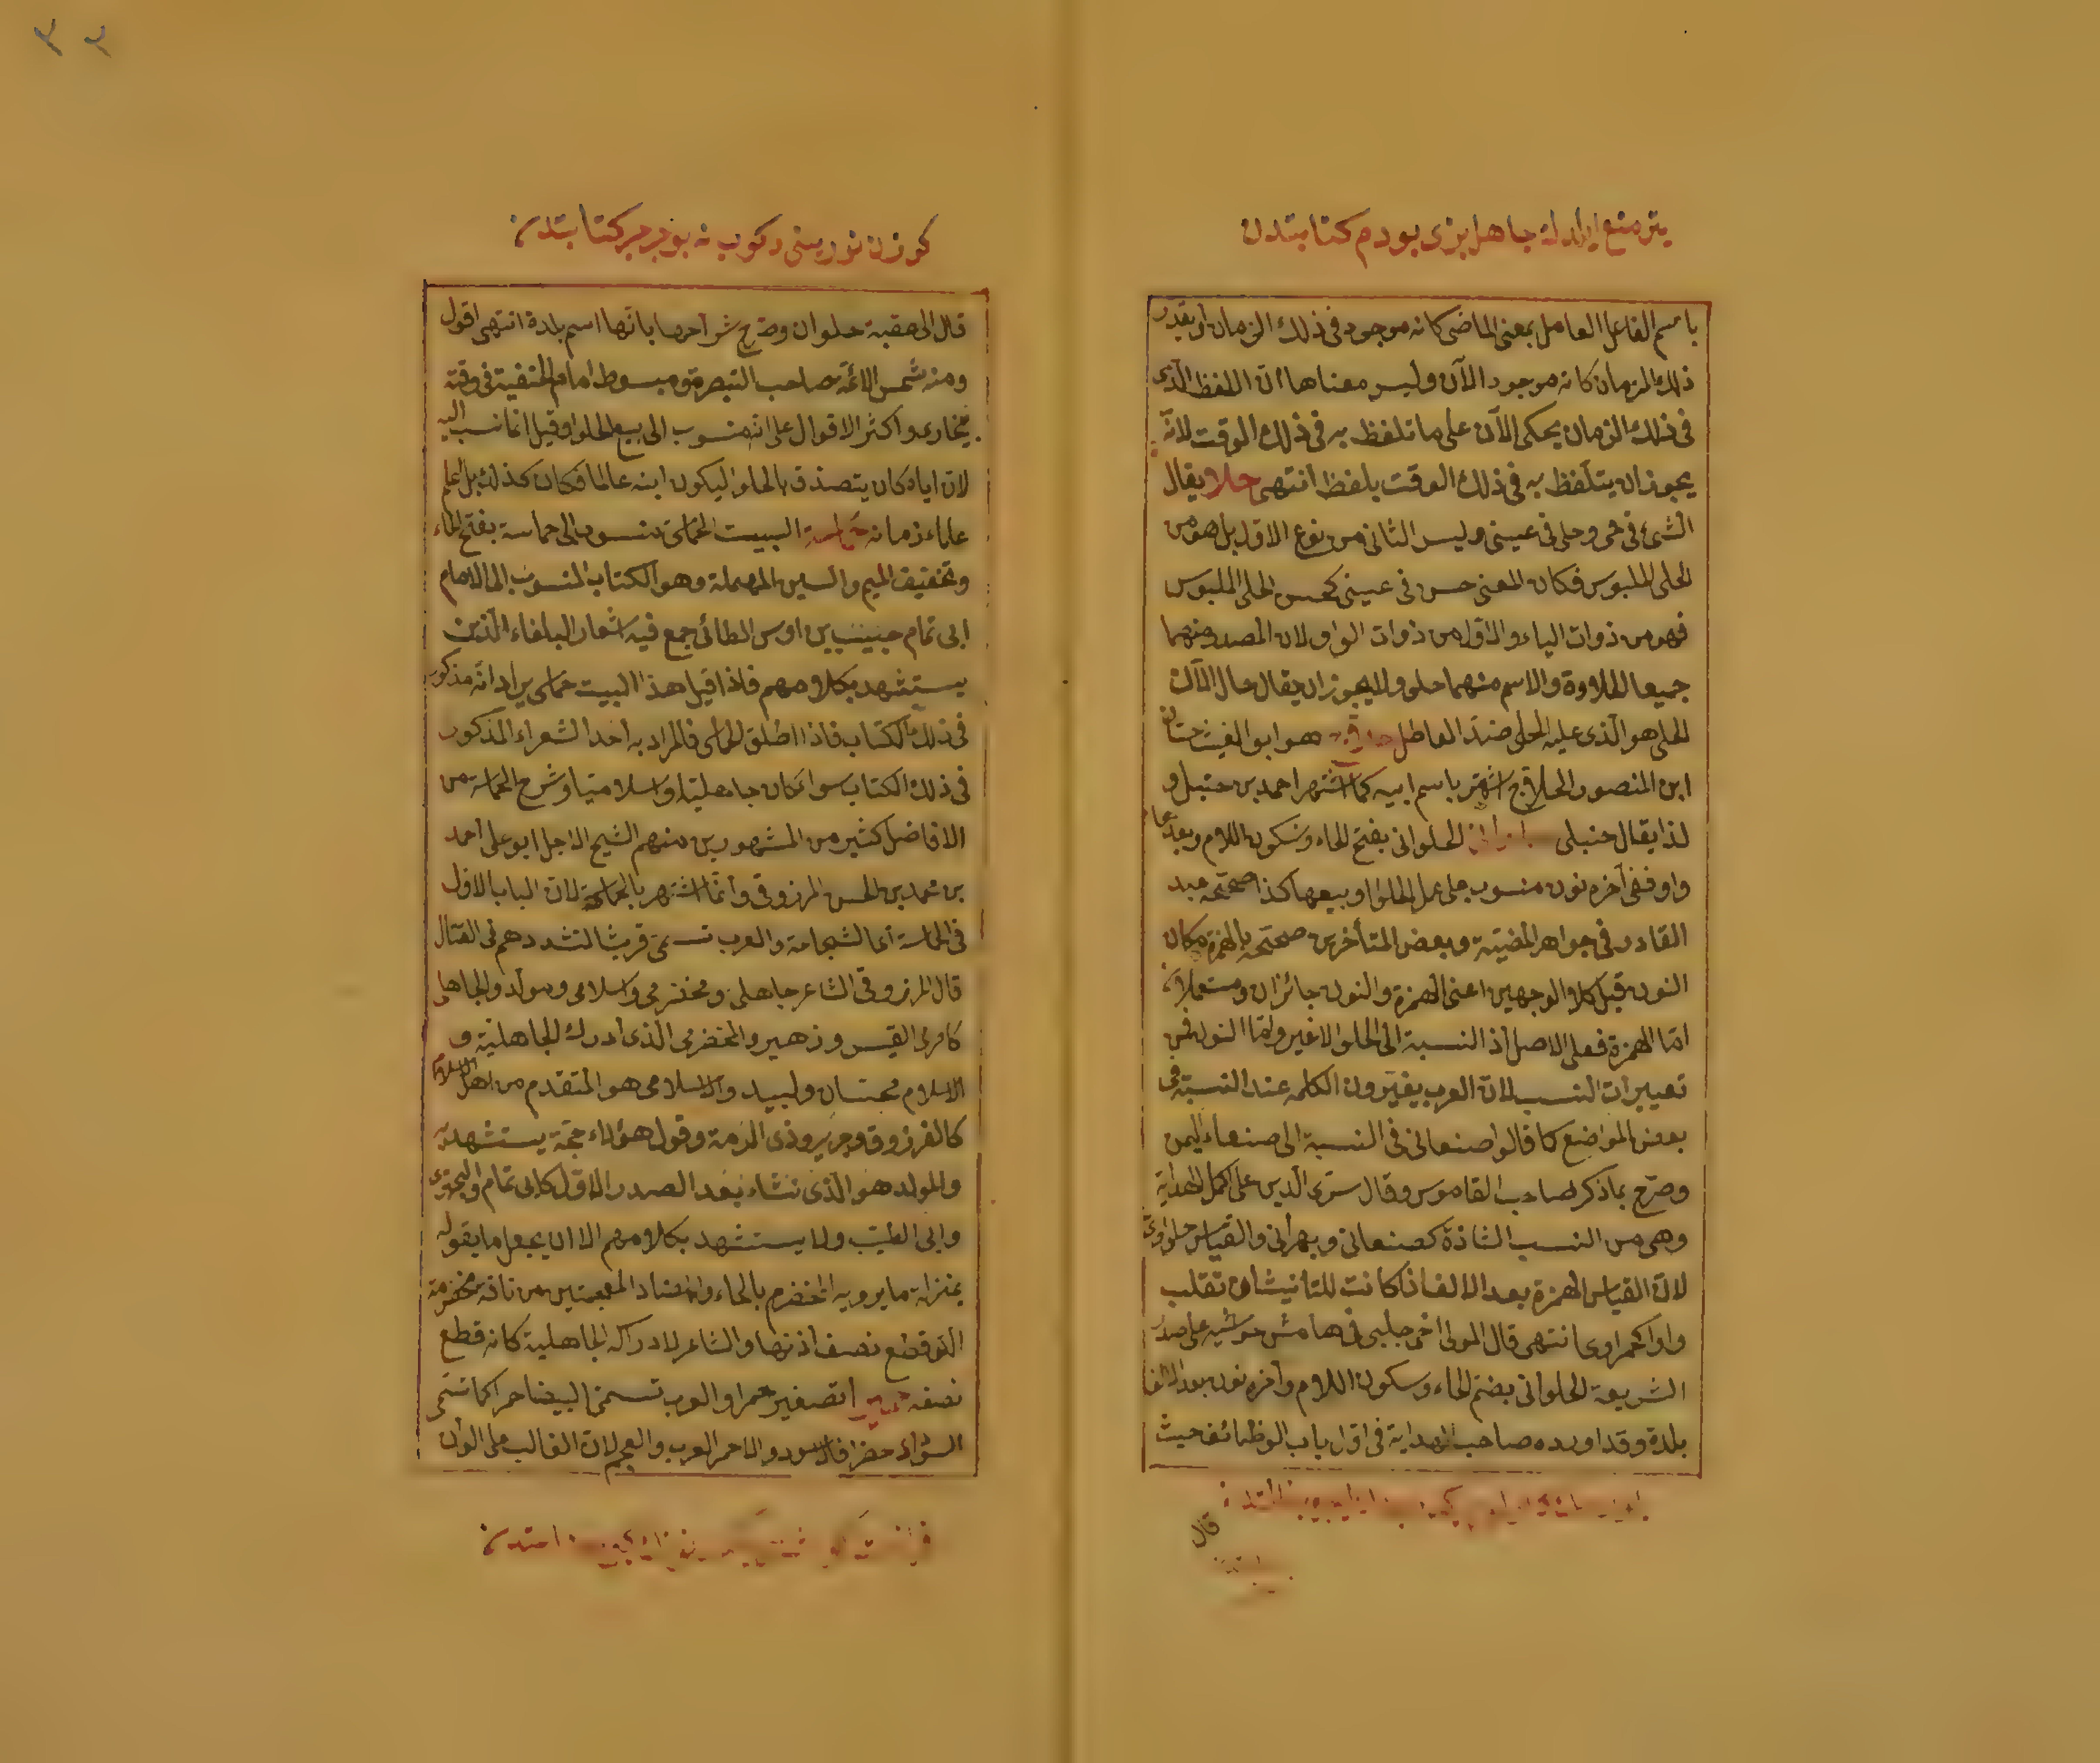 باسم الفاعل العامل بمعنى الماضى كانه موجود فى ذلك الزمان او يقدر
ذلك الزمان كانه موجود الآن وليس معناها ان اللفظ الذى
فى ذلك الزمان يحكى الآن على ما تلفظ به فى ذلك الوقت لانه
يجوز ان يتلفظ به فى ذلك الوقت بلفظ انتهى حلا يقال
الشئ فى فمى وحلى فى عينى وليس الثانى من نوع الاول بل هو من
الحلى الملبوس فكان المعنى حسن فى عينى كحسن الحلى الملبوس
فهو من ذوات الياء والاول من ذوات الواو لان المصدر منهما
جميعا الحلاوة والاسم منهما حلو ولا يجوز ان يقال حال الآن
الحلى هو الذى عليه الحلى ضد العاطل هو ابو الغيث
ابن المنصور الحلاج اشتهر باسم ابيه كما اشتهر احمد بن حنبل و
لذا يقال حنبلى الحلوانى بفتح الحاء وسكون اللام وبعدها
واو ففى آخره نون منسوب على عمل الحلوا وبيعها كذا صححه عبد
القادر فى جواهر المضيئة وبعض المتأخرين صححه بالهمزة مكان
النون قيل كلا الوجهين اعنى الهمزة والنون جائزان ومستعملان
اما الهمزة فعلى الاصل اذ النسبة الى الحلوا لا غير واما النون فمن
تغييرات النسب لان العرب يغيرون الكلمه عند النسبة فى
بعض المواضع كما قالوا صنعانى فى النسبة الى صنعاء اليمن
وصرح بما ذكر صاحب القاموس وقال سرى الدين على اكمل الهداية
وهى من النسب الشاذة كصنعانى وبهرانى والقياس حلواوى
لان القياس الهمزة بعد الالف اذا كانت للتأنيث ان تقلب
واوا كحمراوى انتهى قال المولى اخى جلبى فى هامش حواشيه على صدر
الشريعة الحلوانى بضم الحاء وسكون اللام وآخره نون بعد الالف
بلدة وقد اورده صاحب الهداية فى اول باب الوظائف حيث
قال
قال الى عقبة حلوان وصرح شراحها بانها اسم بلدة انتهى اقول
ومنه شمس الائمة صاحب التبصرة ومبسوط امام الحنفية فى وقته
ببخارى واكثر الاقوال على انه منسوب الى بيع الحلوا وقيل انما نسب اليه
لان اباه كان يتصدق بالحلوا ليكون ابنه عالما فكان كذلك بل اعلم
علماء زمانه حماسة البيت الحماسى منسوب الى حماسة بفتح الحاء
وتخفيف الميم والسين المهملة وهو الكتاب المنسوب الى الامام
ابى تمام حبيب بن اوس الطائى جمع فيه اشعار البلغاء الذين
يستشهد بكلامهم فاذا قيل هذا البيت حماسى يراد انه مذكور
فى ذلك الكتاب فاذا اطلق الحماسى فالمراد به احد الشعراء المذكور
فى ذلك الكتاب سواء كان جاهليا او اسلاميا وشرح الحماسه من
الافاضل كثير من المشهورين منهم الشيخ الاجل ابو على احمد
بن محمد بن الحسن المرزوقى وانما اشتهر بالحماسة لان الباب الاول
فى الحماسة اى الشجاعة والعرب تسمى قريشا لتشددهم فى القتال
قال المرزوقى الشاعر جاهلى ومخضرمى واسلامى ومولد والجاهلى
كامرئ القيس وزهير والمخضرمى الذى ادرك الجاهلية و
الاسلام كحسان ولبيد والاسلامى هو المتقدم من اهل الاسلام
كالفرزوق وجرير وذى الرمة وقول هؤلاء حجة يستشهد به
والمولد هو الذى نشاء بعد الصدر الاول كابى تمام والبحترى
وابى الطيب ولا يستشهد بكلامهم الا ان يجعل ما يقوله
بمنزلة ما يرويه المخضرم بالخاء والضاد المعجمتين من ناقة مخضرمة
التى قطع نصف اذنها والشاعر لادراكه الجاهلية كانه قطع
نصفه حميرا تصغير حمرا والعرب تسمى البيضا حمرا كما تسمى
السؤاد خضرا قال الاسود والاحمر العرب والعجم لان الغالب على الوان